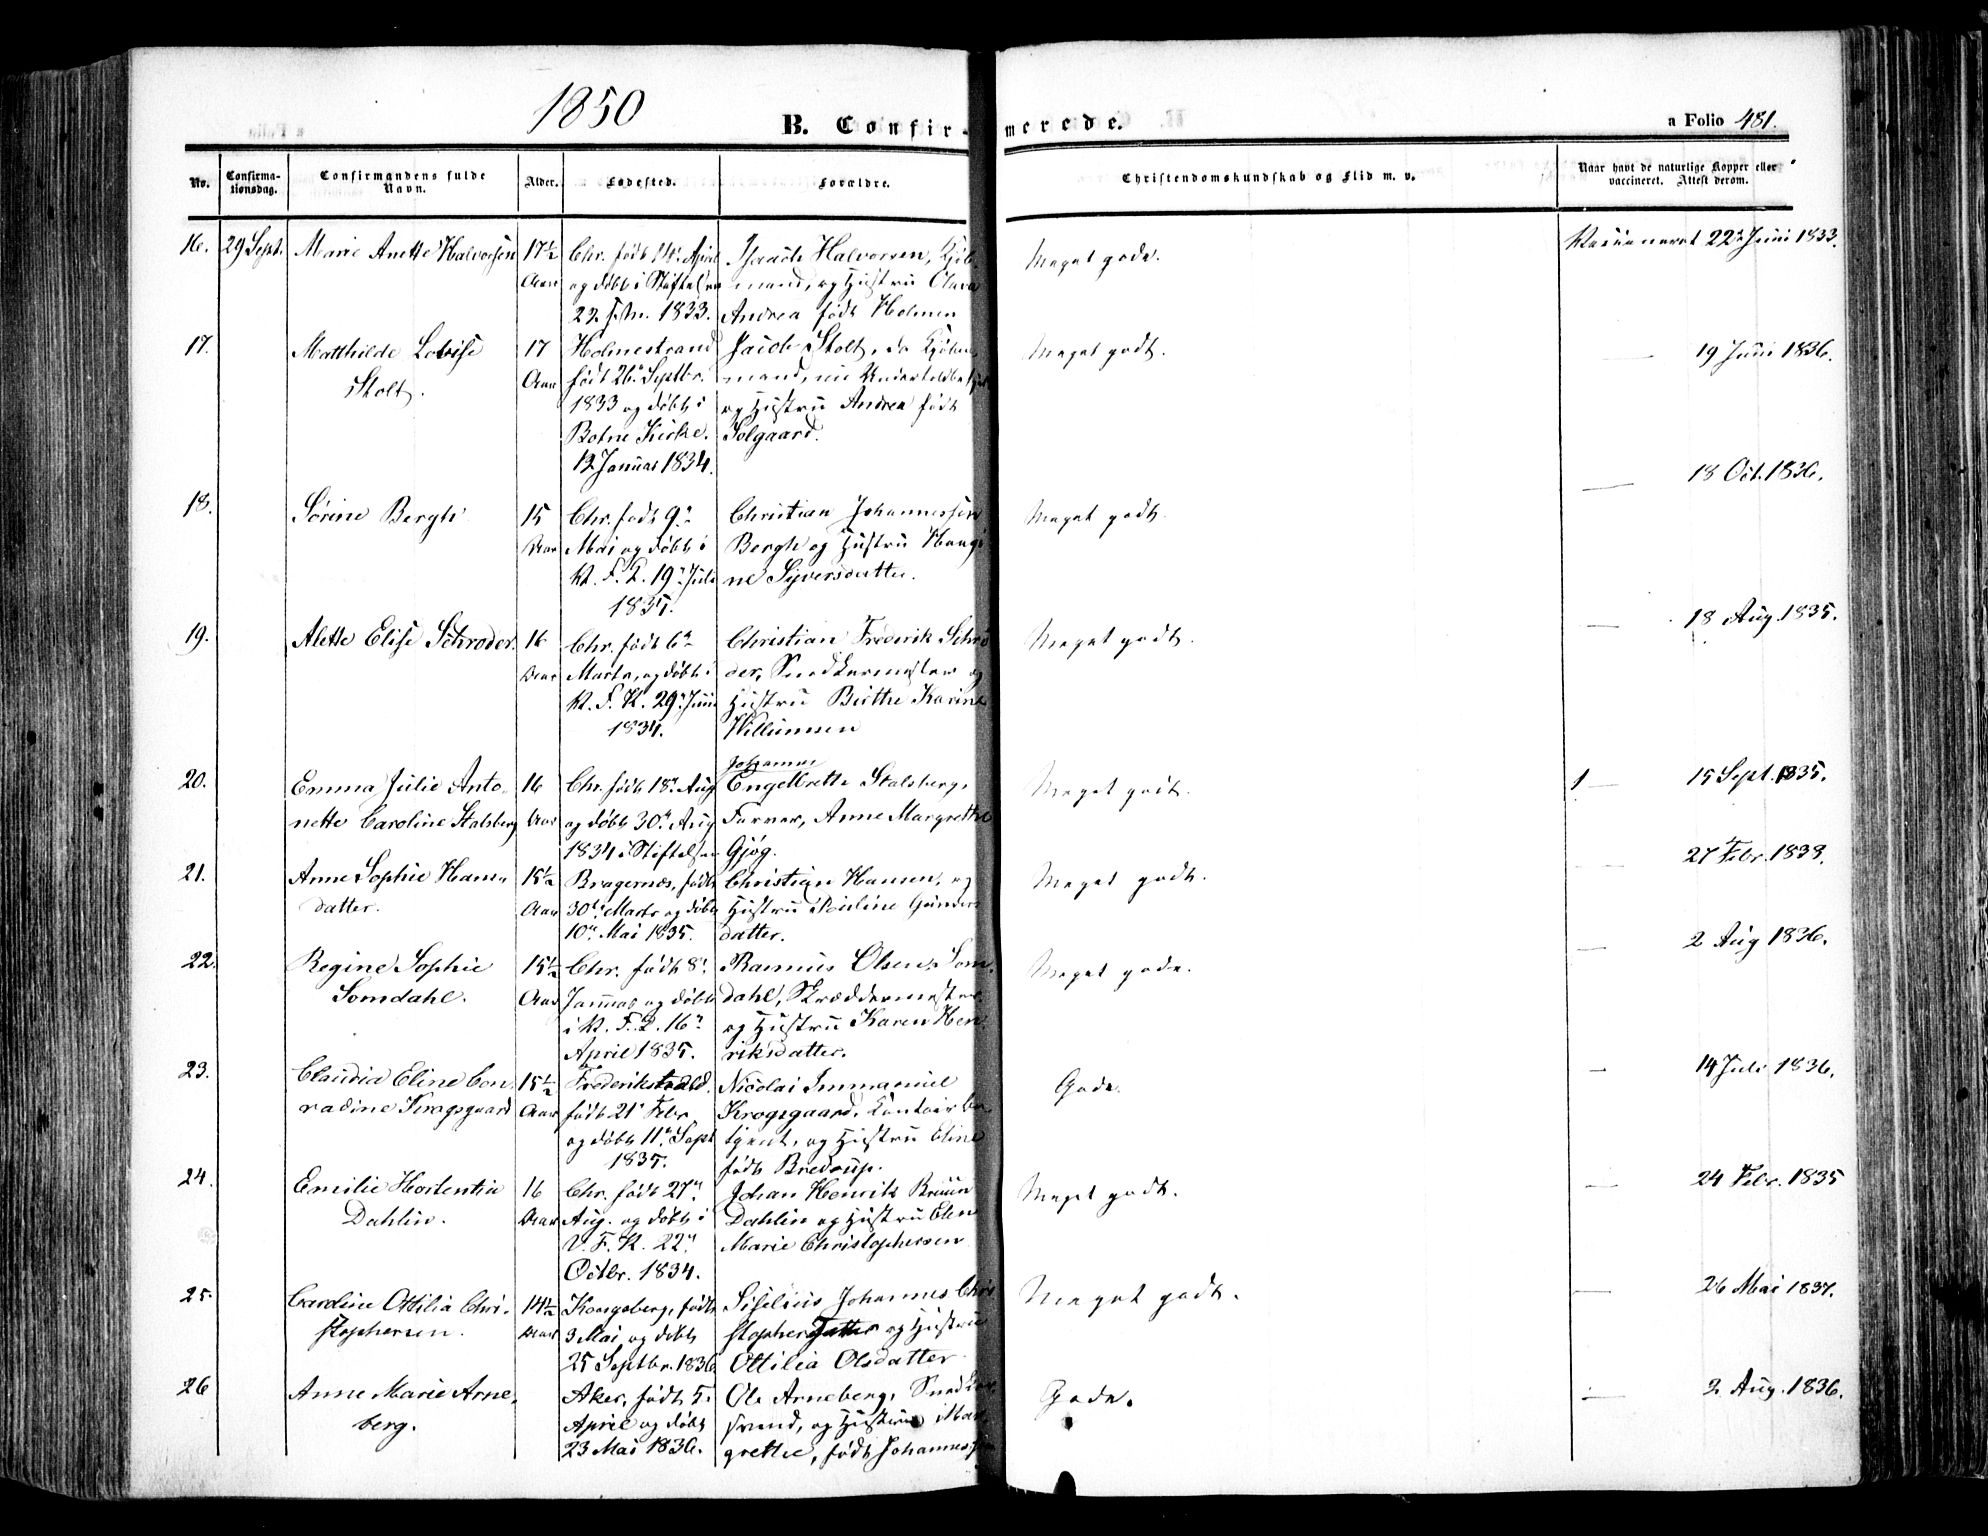 1850
B. Confirmerede.
a Folio 481.
No. Confirmationsdag. Confirmandens fulde Navn. Alder. Fødested. Forældre. Christendomskundskab og Flid m. v. Naar havt de naturlige Kopper eller vaccineret. Attest derom.
16. 29 Sept. Marie Anette Halvorsen 17½ Chr. født 14 April Halvorsen, Kjøb- Meget godt. Vaccineret 22 Juni 1833.
Aar og døbt i Stiftelsen mand, og Hustru
1833. Andrea født Holmen
17. Matthilde Lovise 17 Holmestrand Jacob Stolt, Meget godt. — 19 Juni 1836.
Stolt. Aar født 26 Septbr. mand, nu
1833 og døbt i og Hustru Andrea født
Botne Kirke. Solgaard.
12 Januar 1834.
18. Sørine Bergh 15 Chr. født 9 Christian Johannessen Meget godt. — 18 Oct. 1836.
Aar Mai og døbt i Bergh og Hustru
19 Juli ne Syversdatter.
1835.
19. Alette Elise Schrøder. 16 Chr. født 6 Christian Frederik Schrø- Meget godt. — 18 Aug. 1835.
Aar Marts, og døbt i der, Snedkermester og
V. F. K. 29 Juni Hustru Birthe Karine
1834. Willumsen
Johannes
20. Emma Julie Anto- 16 Chr. født 18 Aug Engelbrette Stalsberg, Meget godt. 1 — 15 Sept. 1835.
nette Caroline Stalsberg Aar og døbt 30 Aug Farver, Anne Margrethe
1834 i Stiftelsen Gjøg.
21. Anne Sophie Hans- 15½ Bragernæs, født Christian Hansen, og Meget godt. — 27 Febr. 1838.
datter. Aar 30 Marts og døbt Hustru Pauline Gunders
10 Mai 1835. datter.
22. Regine Sophie 15½ Chr. født 8 Rasmus Olsen Som- Meget godt. — 2 Aug 1836.
Somdahl. Aar Januar og døbt dahl, Skræddermester
16 og Hustru Karen Hen-
April 1835. riksdatter.
23. Claudia Eline Con- 15½ Frederikshald. Nicolai Immanuel Godt. — 14 Juli 1836.
radine Krogsgaard Aar født 21 Febr. Krogsgaard,
og døbt 11 Sept og Hustru Eline
1835. født Bredrup.
24. Emilie Hortentia 16 Chr. født 27 Johan Henrik Bruun Meget godt. — 24 Febr. 1835
Dahlin. Aar Aug. og døbt i Dahlin og Hustru Elen
V. F. K. 22 Marie Christophersen
Octbr. 1834.
25. Caroline Ottilia Chri- 14½ Kongsberg, født Johannes Chri Meget godt. — 26 Mai 1837.
stophersen. Aar 3 Mai og døbt og Hustru
25 Septbr. 1836 Ottilia Olsdatter
26 Anne Marie Arne- Aker, født 5 Ole Arneberg, Snedker- Godt. — 2 Aug. 1836.
berg. April og døbt svend, og Hustru Mar-
23 Mai 1836. grethe, født Johannessen